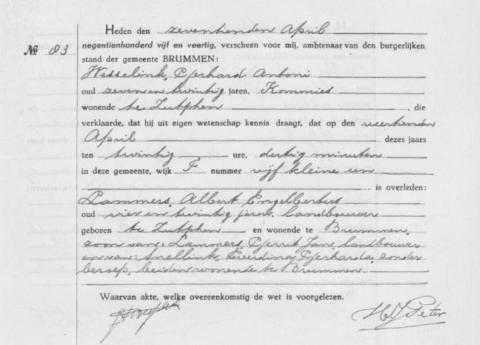 Heden den zeventienden April
№ 83
negentienhonderd vijf en veertig, verscheen voor mij, ambtenaar van den burgerlijken
stand der gemeente BRUMMEN:
Wesselink, Gerhard Antoni
oud zeven en twintig jaren, Kommies
wonende te Zutphen, die
verklaarde, dat hij uit eigen wetenschap kennis draagt, dat op den veertienden
April dezes jaars
ten twintig ure, dertig minuten
in deze gemeente, wijk F nummer vijf kleine
is overleden:
Lammers, Albert Engelbertus
oud vier en twintig jaren, landbouwer
geboren te Zutphen en wonende te Brummen,
zoon van: Lammers, Gerrit Jan, landbouwer
en van: Snellink, Berendina Gerharda, zonder
beroep, beiden wonende te Brummen.
Waarvan akte, welke overeenkomstig de wet is voorgelezen.
H J Peter